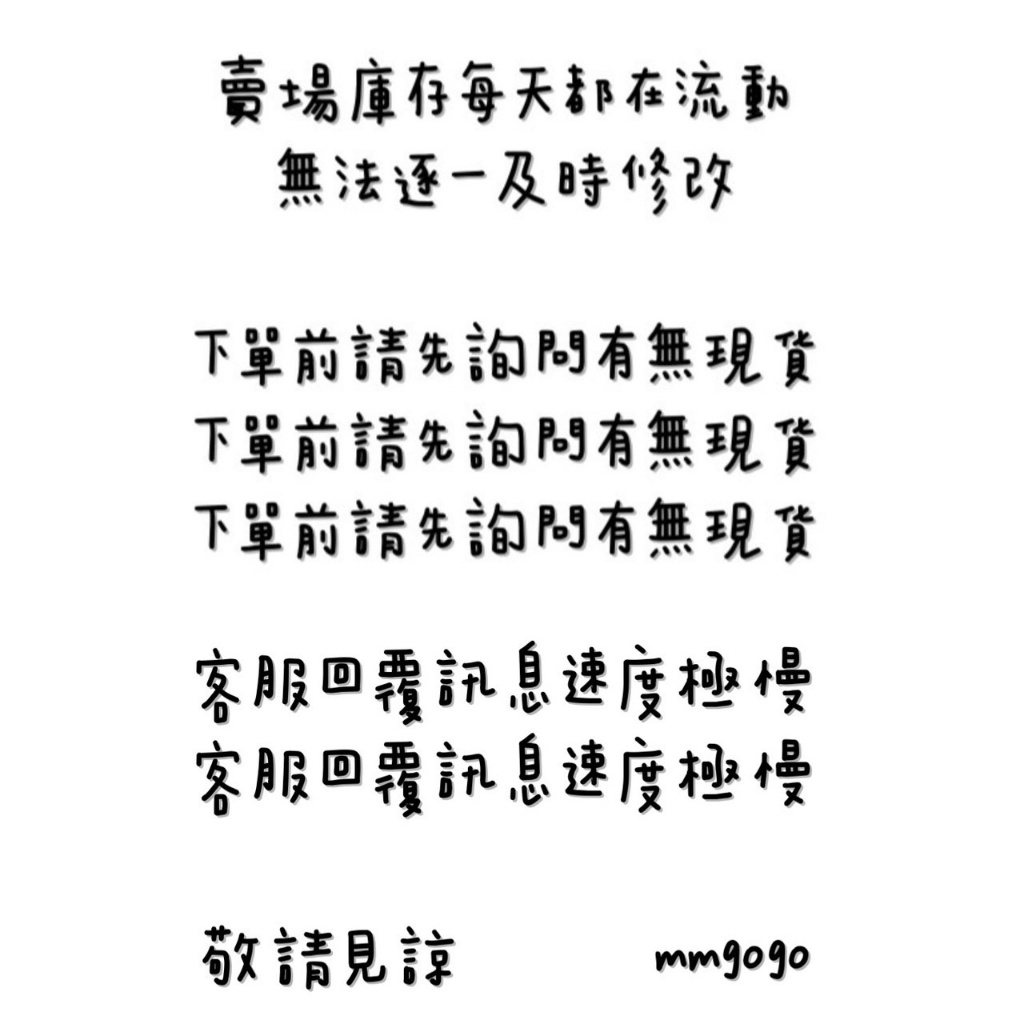 賣場庫存每天都在流動
無法逐一及時修改
下單前請先詢問有無現貨
下單前請先詢問有無現貨
下單前請先詢問有無現貨
客服回覆訊息速度極慢
客服回覆訊息速度極慢
敬請見諒 mmgogo